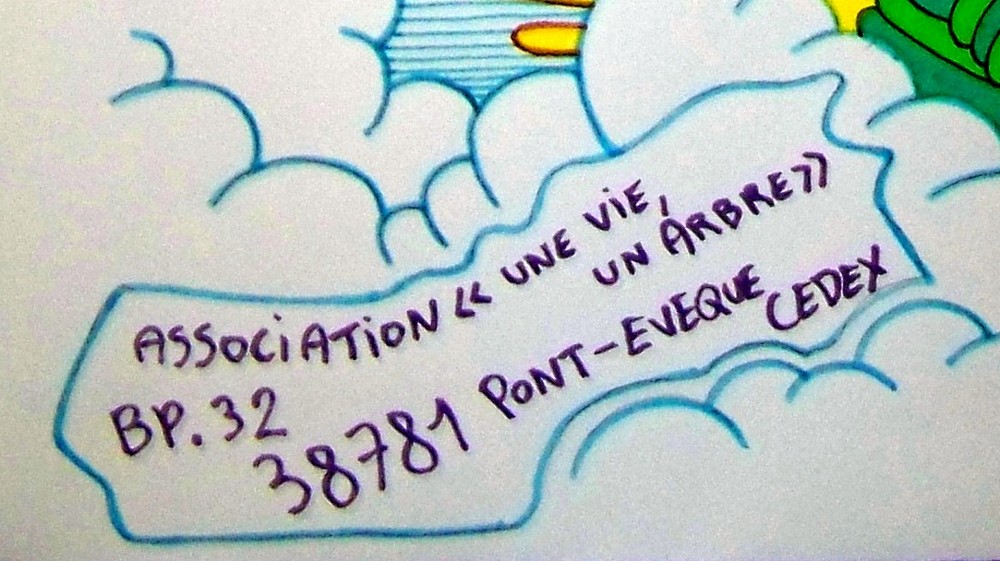 ASSOCIATION << UNE VIE,
UN ARBRE >>
BP. 32
38781 PONT-EVEQUE
CEDEX